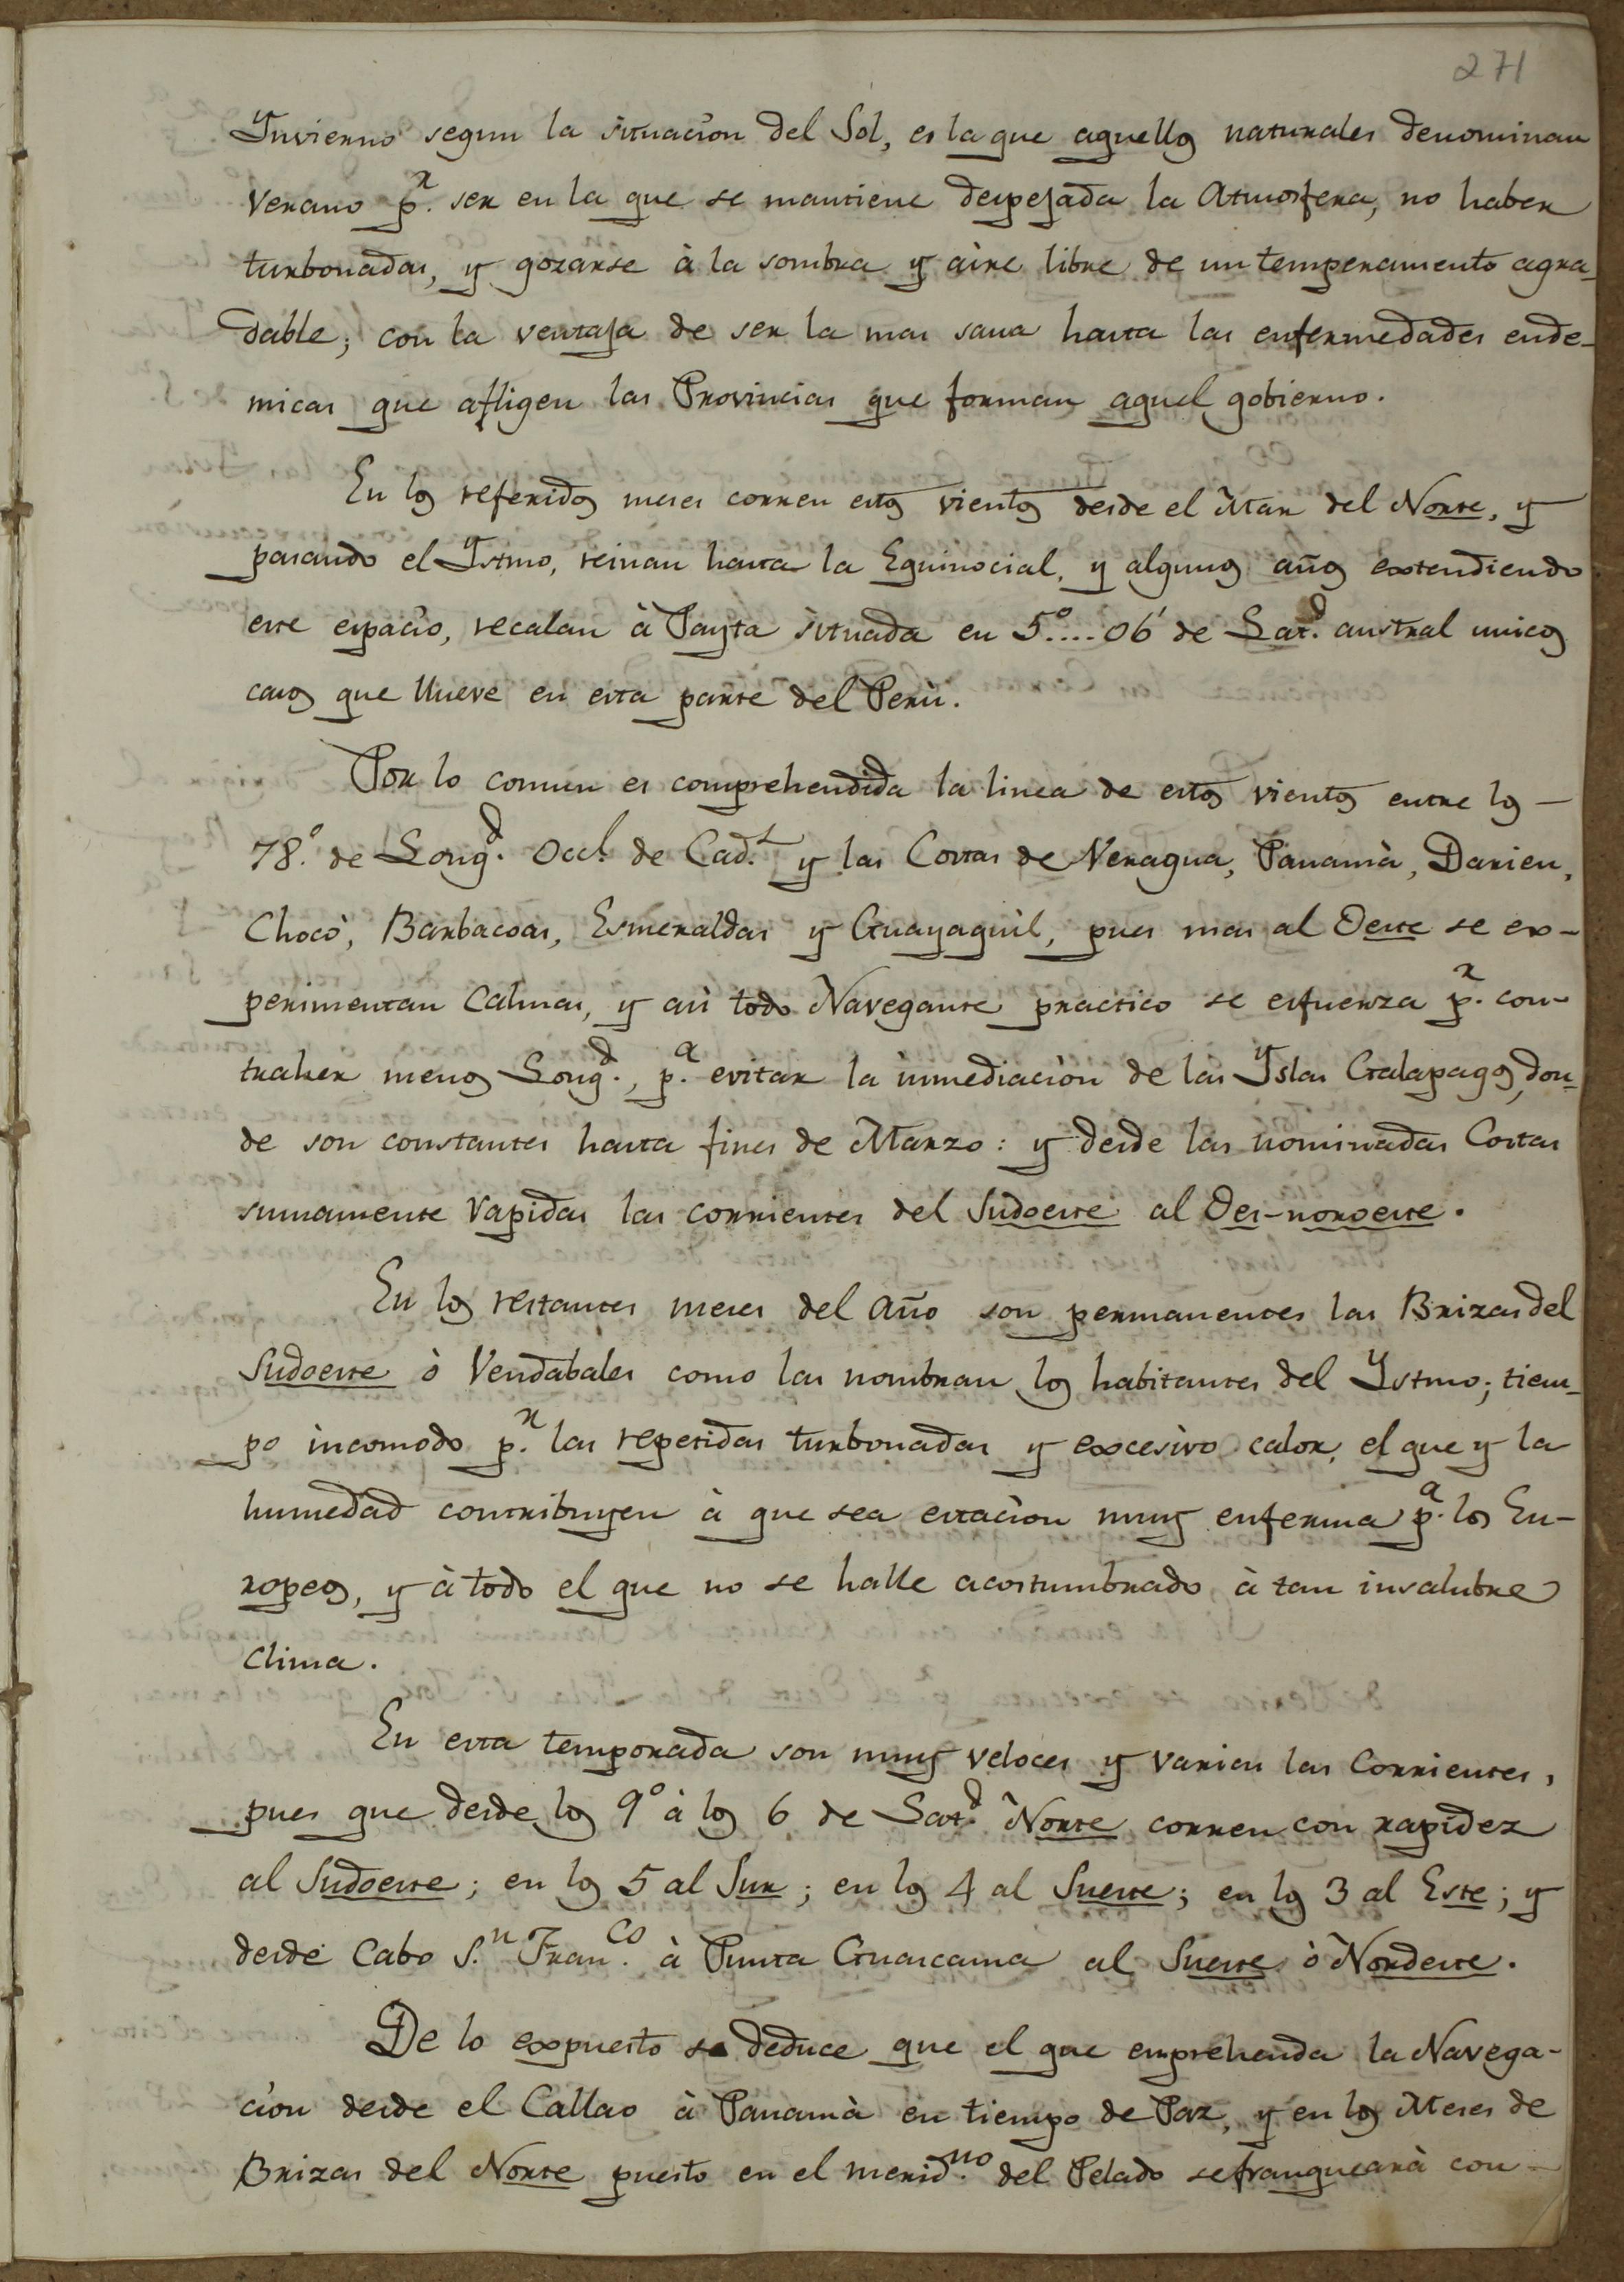 271
Ynvierno segun la situacion del Sol, es la que aquellos naturales denominan
Verano p.r ser en la que se mantiene despejada la Atmosfera, no haber
turbonadas, y gozarse à la sombra y aire libre de un temperamento agra-
dable; con la ventaja de ser la mas sana hasta las enfermedades ende-
micas que afligen las Provincias que forman aquel gobierno.
En los referidos meses corren estos vientos desde el Mar del Norte, y
pasando el Ystmo, reinan hasta la Equinocial, y algunos años extendiendo
este espacio, recalan à Payta situada en 5°....06' de Lat.d austral unicos
casos que llueve en esta parte del Perù.
Por lo comun es comprehendida la linea de estos vientos entre los -
78.° de Long.d Occl. de Cad.z y las Costas de Veragua, Panamà, Darien,
Chocò, Barbacoas, Esmeraldas y Guayaquil, pues mas al Oeste se ex-
perimentan Calmas, y asi todo Navegante practico se esfuerza p.r con-
traher menos Long.d, p.a evitar la inmediaciòn de las Yslas Galapagos, don-
de son constantes hasta fines de Marzo: y desde las nominadas Costas
sumamente rapidas las corrientes del Sudoeste al Oes-noroeste.
En los restantes meses del Año son permanentes las Brizas del
Sudoeste ò Vendabales como las nombran los habitantes del Ystmo; tiem-
po incomodo p.r las repetidas turbonadas y excesivo calor, el que y la
humedad contribuyen à que sea estaciòn muy enferma p.a los Eu-
ropeos, y à todo el que no se halle acostumbrado à tan insalubre
Clima.
En esta temporada son muy veloces y varias las Corrientes,
pues que desde los 9° à los 6 de Lat.d Norte corren con rapidez
al Sudoeste; en los 5 al Sur; en los 4 al Sueste; en los 3 al Este; y
desde Cabo S.n Fran.co à Punta Guascama al Sueste ò Nordeste.
De lo expuesto se deduce que el que emprehenda la Navega-
cion desde el Callao à Panamà en tiempo de Paz, y en los Meses de
Brizas del Norte puesto en el merid.no del Pelado se franquearà con-